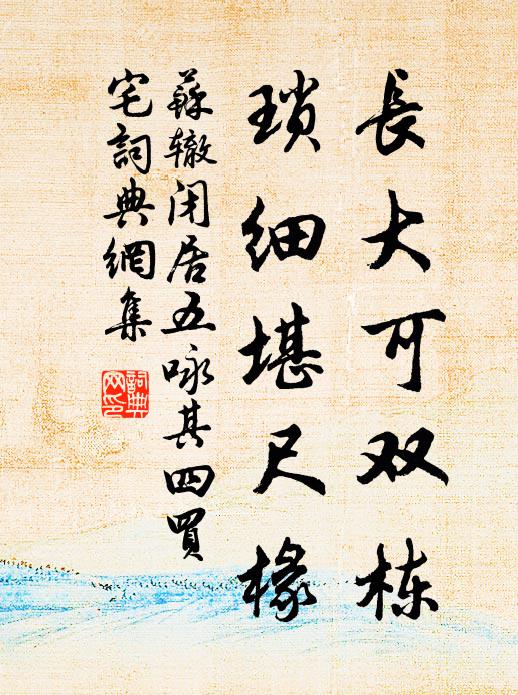 長大可双栋
瑣细堪尺椽
蘇辙闭居五咏其四買
宅詞典網集
詞典
网印